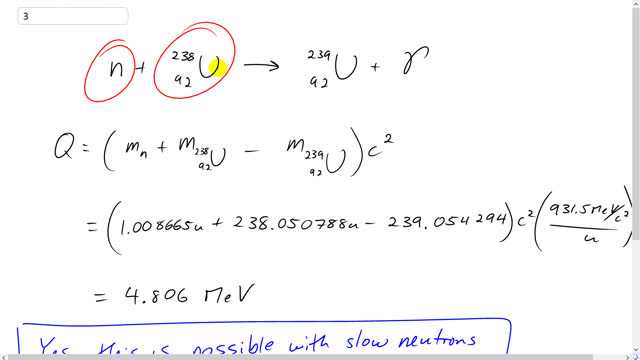 3
n + ²³⁸₉₂U ⟶ ²³⁹₉₂U + γ
Q = (mₙ + m ²³⁸₉₂U − m ²³⁹₉₂U) c²
= (1.008665u + 238.050788u − 239.054294) c² (931.5 MeV/c² / u)
= 4.806 MeV
Yes, this is possible with slow neutrons